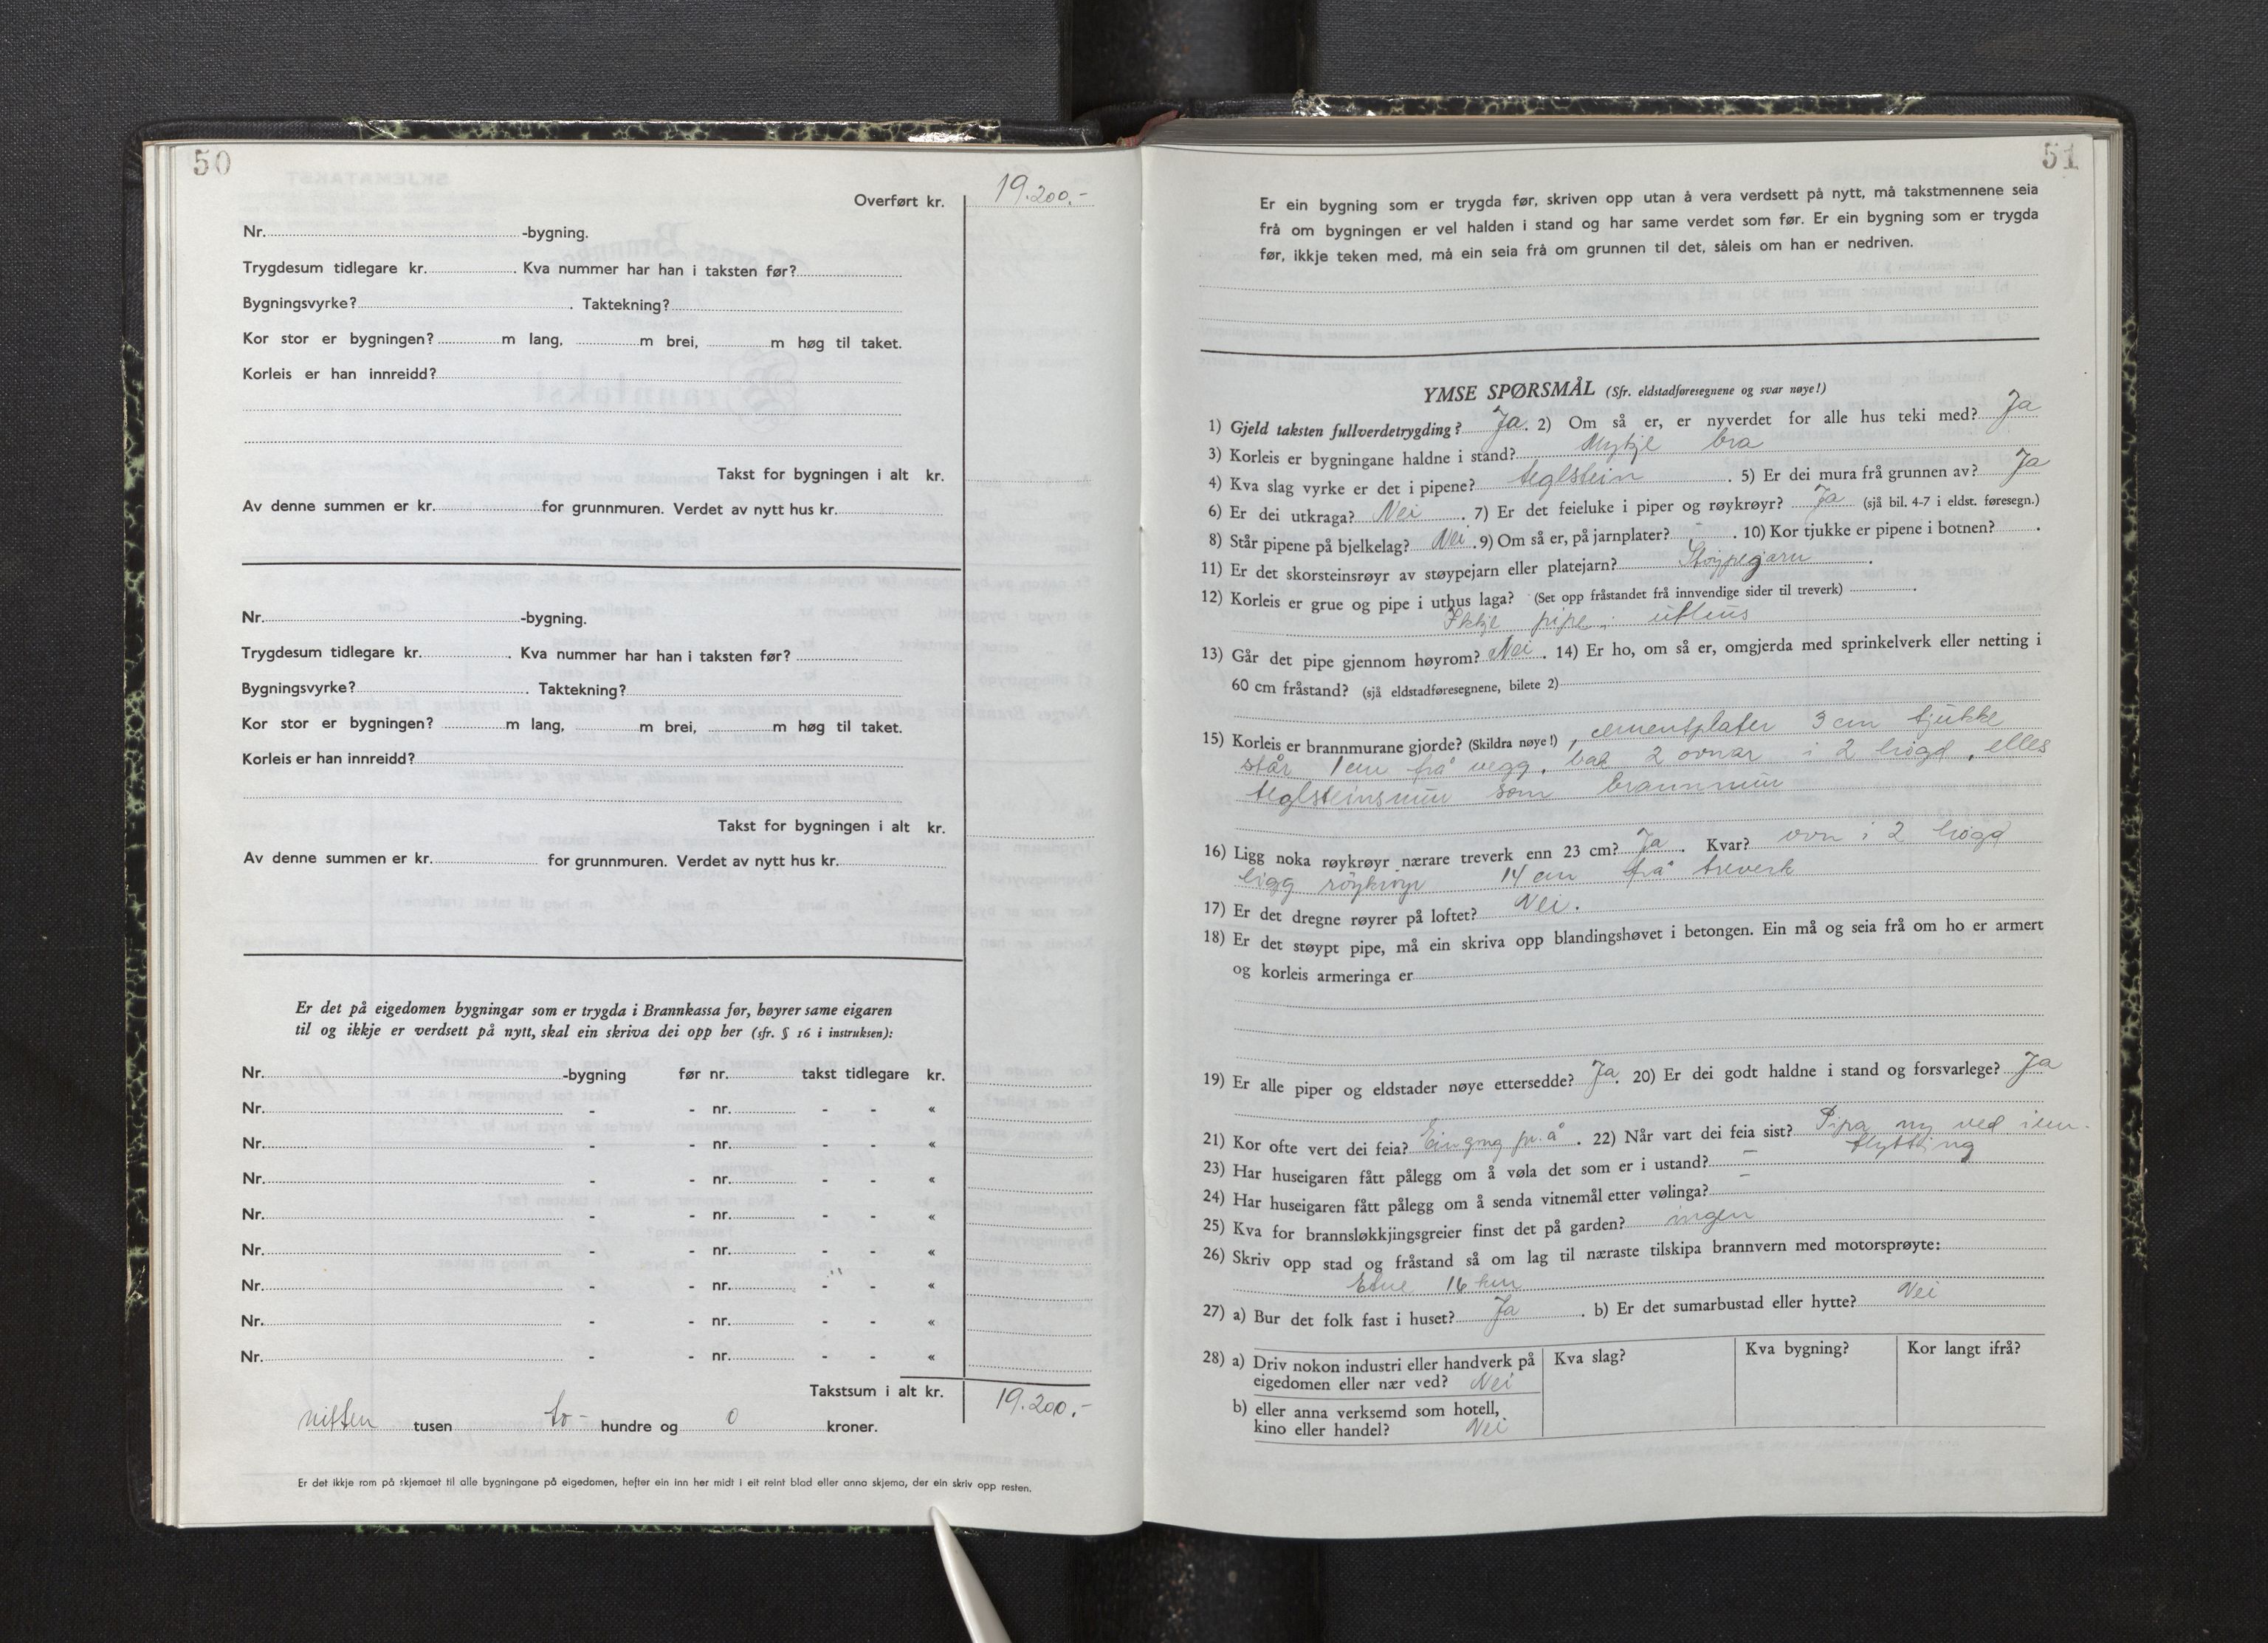 50
Overført kr. 19.200,-
Nr. -bygning.
Trygdesum tidlegare kr. . Kva nummer har han i taksten før?
Bygningsvyrke? . Taktekning?
Kor stor er bygningen? m lang, m brei, m høg til taket.
Korleis er han innreidd?
Takst for bygningen i alt kr.
Av denne summen er kr. for grunnmuren. Verdet av nytt hus kr.
Nr. -bygning.
Trygdesum tidlegare kr. . Kva nummer har han i taksten før?
Bygningsvyrke? . Taktekning?
Kor stor er bygningen? m lang, m brei, m høg til taket.
Korleis er han innreidd?
Takst for bygningen i alt kr.
Av denne summen er kr. for grunnmuren. Verdet av nytt hus kr.
Er det på eigedomen bygningar som er trygda i Brannkassa før, høyrer same eigaren
til og ikkje er verdsett på nytt, skal ein skriva dei opp her (sfr. § 16 i instruksen):
Nr. -bygning før nr. takst tidlegare kr.
Nr. - - nr. - - «
Nr. - - nr. - - «
Nr. - - nr. - - «
Nr. - - nr. - - «
Nr. - - nr. - - «
Nr. - - nr. - - «
Nr. - - nr. - - «
Nr. - - nr. - - «
Takstsum i alt kr. 19.200,-
nitten tusen to- hundre og 0 kroner.
Er det ikkje rom på skjemaet til alle bygningane på eigedomen, hefter ein inn her midt i eit reint blad eller anna skjema, der ein skriv opp resten.
51
Er ein bygning som er trygda før, skriven opp utan å vera verdsett på nytt, må takstmennene seia
frå om bygningen er vel halden i stand og har same verdet som før. Er ein bygning som er trygda
før, ikkje teken med, må ein seia frå om grunnen til det, såleis om han er nedriven.
YMSE SPØRSMÅL (Sfr. eldstadføresegnene og svar nøye!)
1) Gjeld taksten fullverdetrygding? Ja. 2) Om så er, er nyverdet for alle hus teki med? Ja
3) Korleis er bygningane haldne i stand? Mykje bra
4) Kva slag vyrke er det i pipene? teglstein . 5) Er dei mura frå grunnen av? Ja
6) Er dei utkraga? Nei . 7) Er det feieluke i piper og røykrøyr? Ja (sjå bil. 4-7 i eldst. føresegn.)
8) Står pipene på bjelkelag? Nei . 9) Om så er, på jarnplater? - . 10) Kor tjukke er pipene i botnen? .
11) Er det skorsteinsrøyr av støypejarn eller platejarn? Støypejarn .
12) Korleis er grue og pipe i uthus laga? (Set opp fråstandet frå innvendige sider til treverk) .
Ikkje pipe i uthus
13) Går det pipe gjennom høyrom? Nei . 14) Er ho, om så er, omgjerda med sprinkelverk eller netting i
60 cm fråstand? (sjå eldstadføresegnene, bilete 2)
15) Korleis er brannmurane gjorde? (Skildra nøye!) , cementplater 3 cm tjukke
står 1 cm frå vegg, bak 2 ovnar i 2 høgd, elles
teglsteinsmur som brannmur
16) Ligg noka røykrøyr nærare treverk enn 23 cm? Ja . Kvar? ovn i 2 høgd
ligg røykrøyr 14 cm frå treverk
17) Er det dregne røyrer på loftet? Nei.
18) Er det støypt pipe, må ein skriva opp blandingshøvet i betongen. Ein må og seia frå om ho er armert
og korleis armeringa er
19) Er alle piper og eldstader nøye ettersedde? Ja. 20) Er dei godt haldne i stand og forsvarlege? Ja
21) Kor ofte vert dei feia? Ein gong pr. å . 22) Når vart dei feia sist? Pipa ny ved inn-
flytting
23) Har huseigaren fått pålegg om å vøla det som er i ustand? -
24) Har huseigaren fått pålegg om å senda vitnemål etter vølinga? -
25) Kva for brannsløkkjingsgreier finst det på garden? ingen
26) Skriv opp stad og fråstand så om lag til næraste tilskipa brannvern med motorsprøyte:
Etne 16 km
27) a) Bur det folk fast i huset? Ja . b) Er det sumarbustad eller hytte? Nei
28) a) Driv nokon industri eller handverk på eigedomen eller nær ved? Nei
Kva slag?
Kva bygning?
Kor langt ifrå?
b) eller anna verksemd som hotell,
kino eller handel? Nei